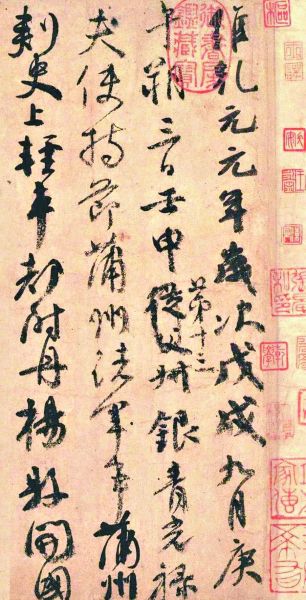 維乾元元年歲次戊戌九月庚
午朔三日壬申第十三從父叔銀青光祿
夫使持節蒲州諸軍事蒲州
刺史上輕車都尉丹楊縣開國